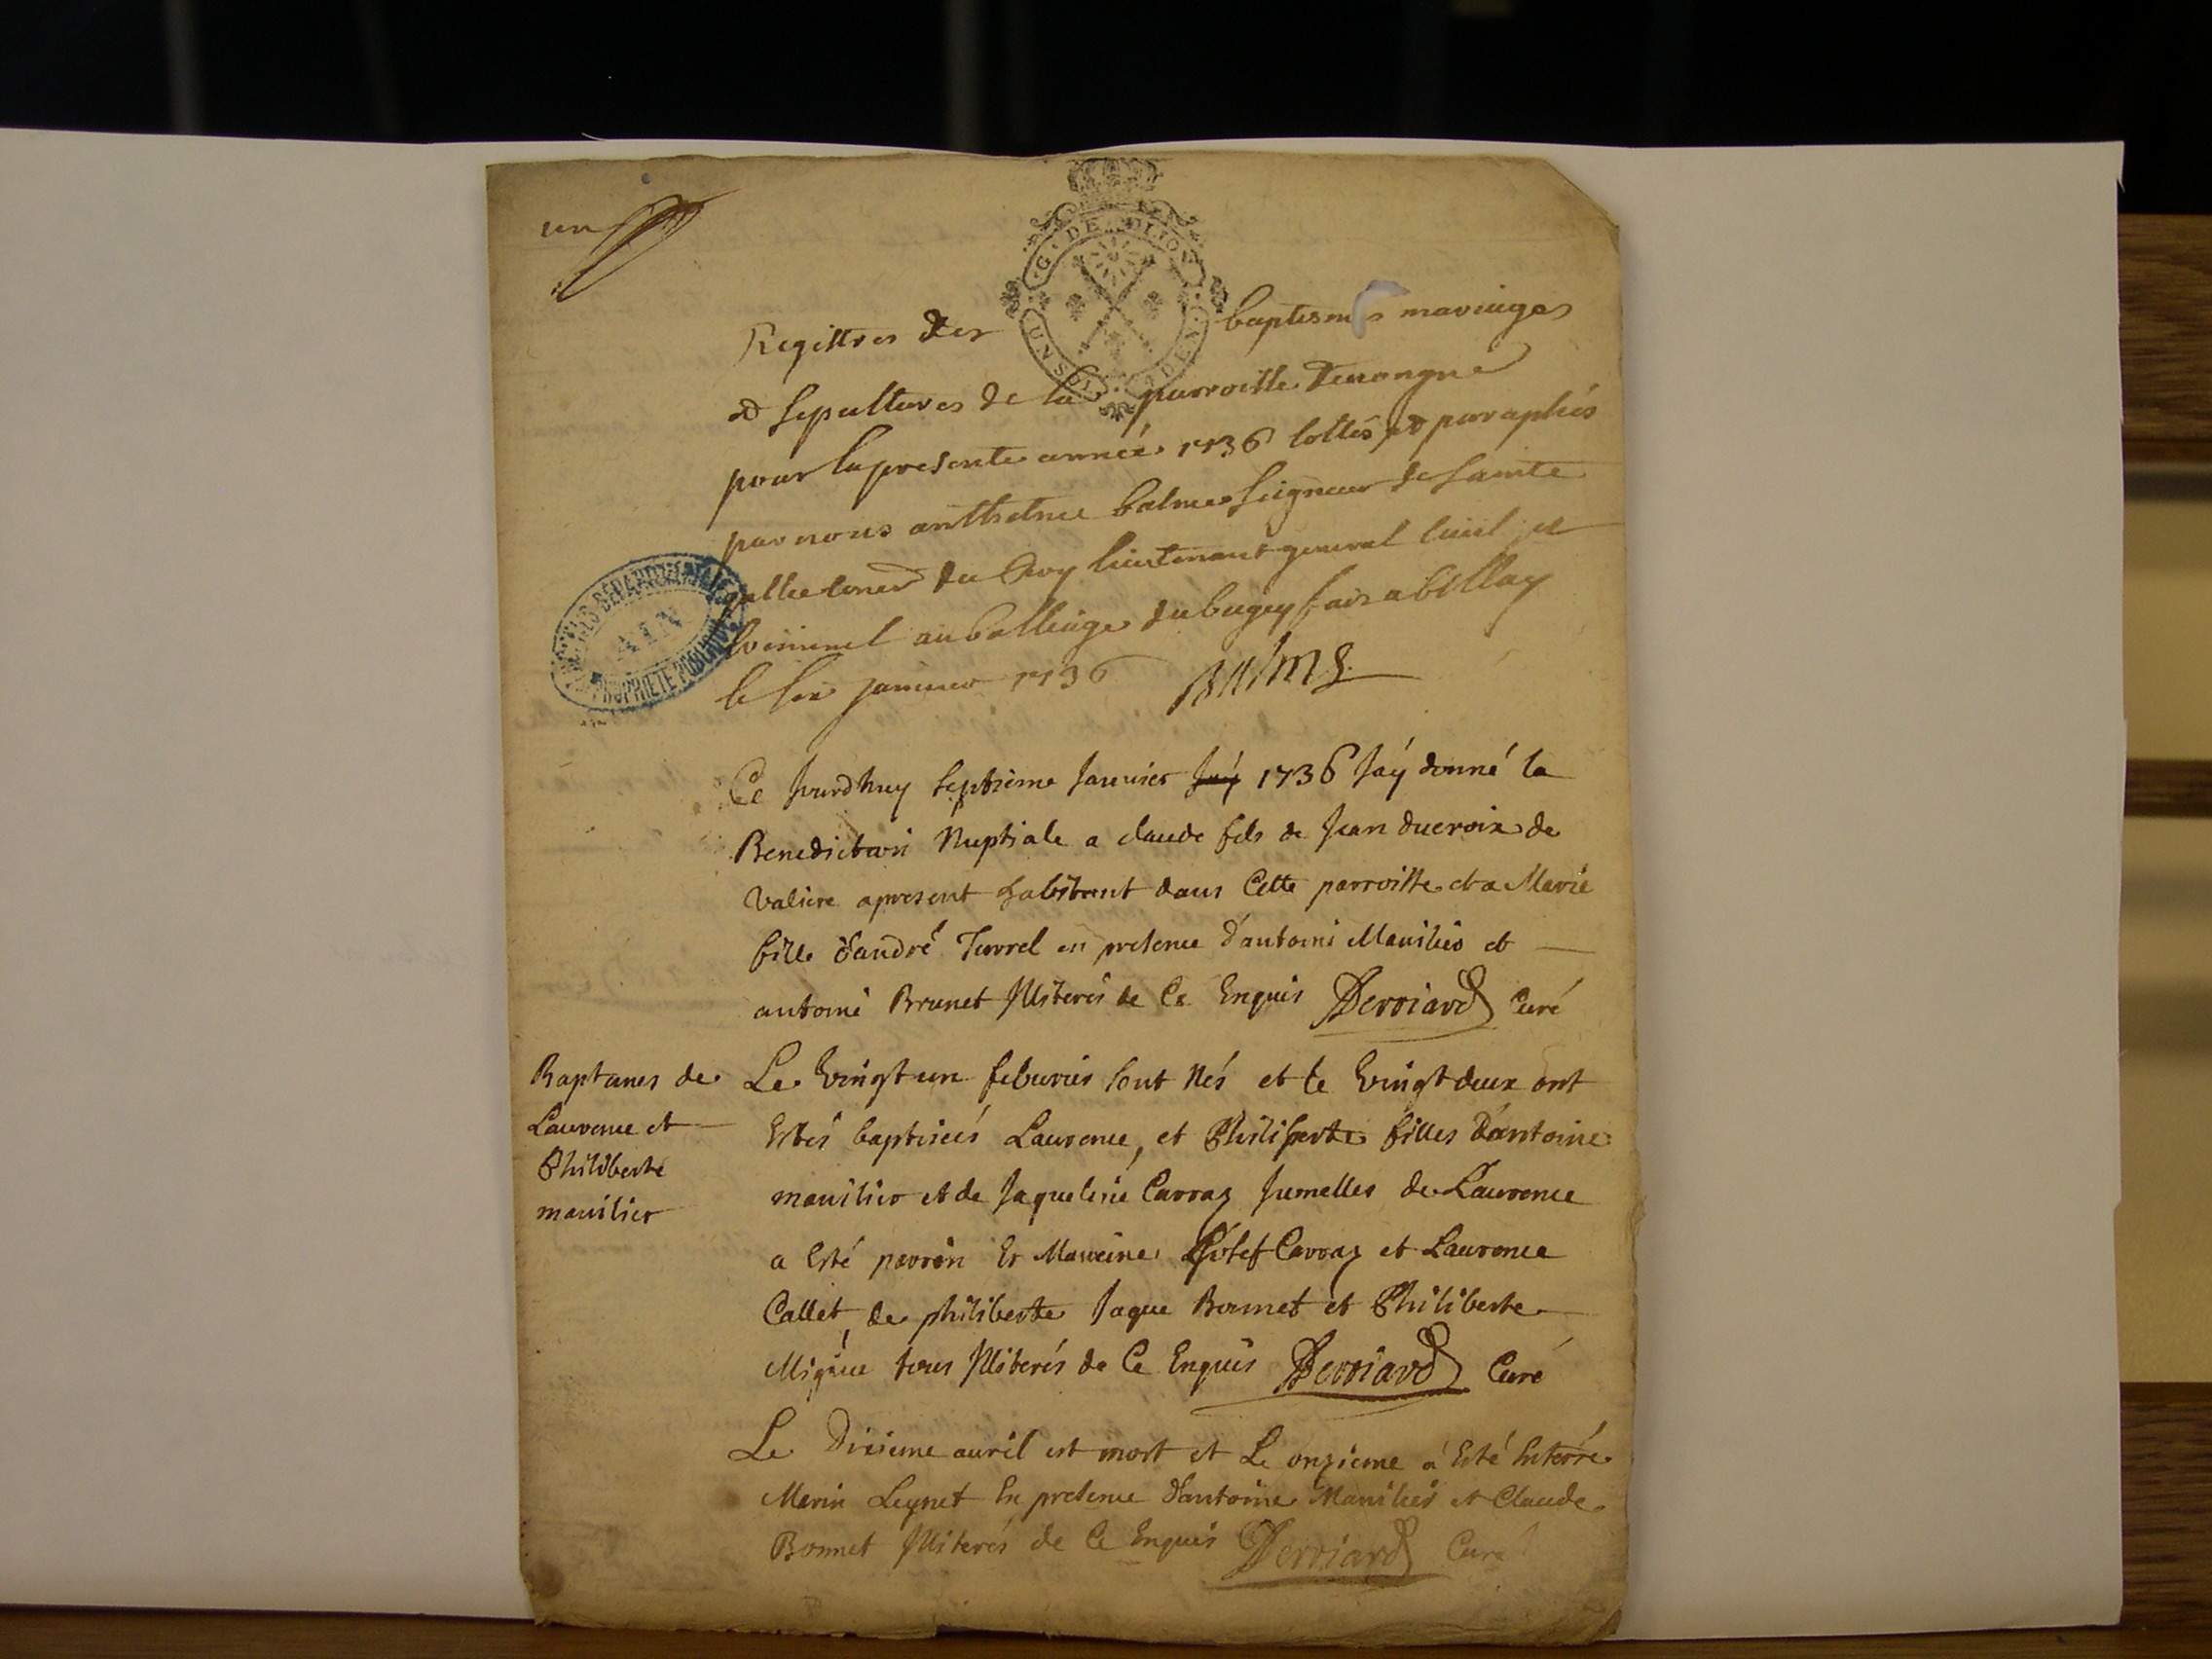 un
G. DE DIJON
UN SOL
Registres des baptismes mariages
et sepultures de la parroisse
pour la presente année 1736 cottés et paraphés
par nous anthelme balme seigneur de sainte
du Roy lieutenant general civil et
criminel au balliage du bugey fait a bellay
le six janvier 1736 Balme
ARCHIVES DEPARTEMENTALES
AIN
PROPRIETE PUBLIQUE
Ce jourdhuy septieme Janvier Jaÿ 1736 Jaÿ donné la
Benediction Nuptiale a claude fils de Jean ducroix de
valiere apresent habitant dans Cette parroisse et a Marie
fille d'andré Turrel en presence d'antoine Manilier et
antoine Brunet Illiterés de Ce Enquis Derriard Curé
Baptemes de
Laurence et
Philiberte
manilier
Le Vingt un febvrier sont Nés et le Vingt deux ont
Estés baptisées Laurence, et Philiberte filles D'antoine
manilier et de Jaqueline Carraz Jumelles de Laurence
a Esté parrein Et Marreine Josef Carraz et Laurence
Callet, de philiberte Jaque Bonnet et Philiberte
tous Illiterés de Ce Enquis Derriard Curé
Le Dixieme auril est mort et Le onzieme a Esté Enterré
Marin Leynet En presence d'antoine Manilier et Claude
Bonnet Illiterés de Ce Enquis Derriard Curé